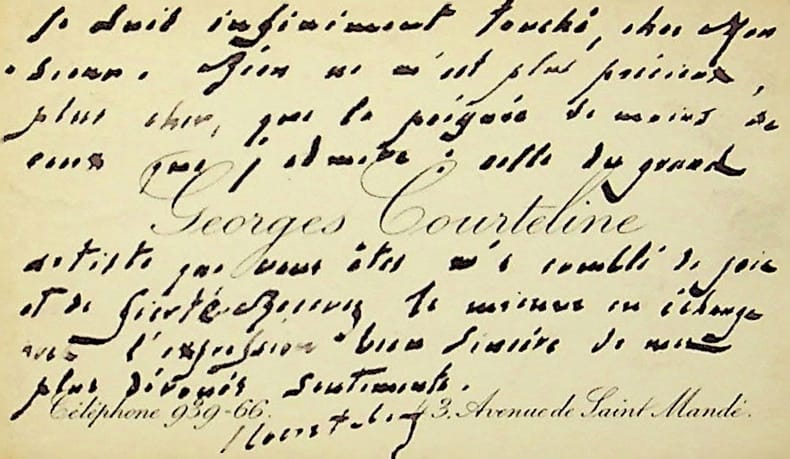 Je suis infiniment touché, cher Mon
sieur. Rien ne m'est plus précieux,
plus cher, que la poignée de mains de
ceux que j'admire : celle du grand
Georges Courteline
artiste que vous êtes m'a comblé de joie
et de fierté. Recevez la mienne en échange
avec l'expression bien sincère de mes
plus dévoués sentiments.
Téléphone 939-66. 43. Avenue de Saint Mandé.